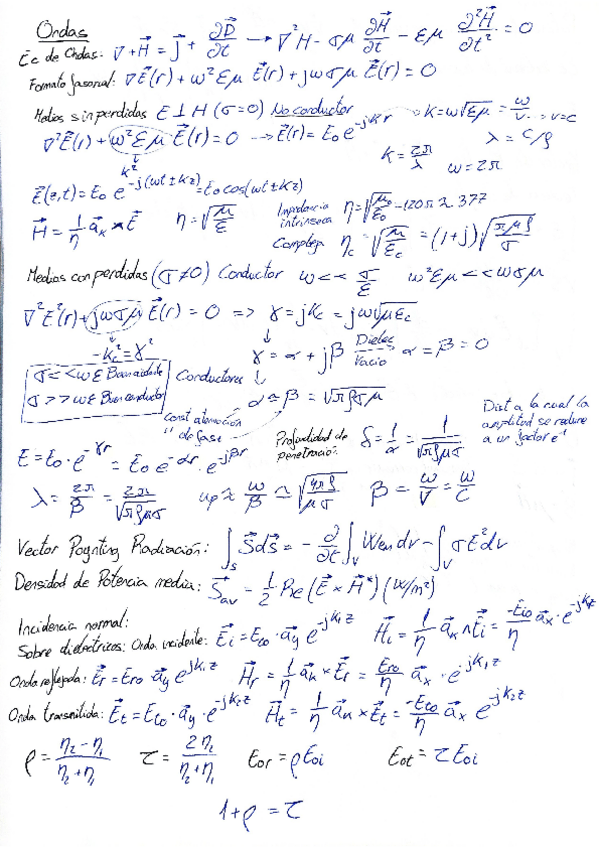 Ondas
Ec de Ondas: ∇×H⃗ = j⃗ + ∂D⃗/∂t → ∇²H − σμ ∂H⃗/∂t − εμ ∂²H⃗/∂t² = 0
Formato fasorial: ∇E⃗(r) + ω²εμ E⃗(r) + jωσμ E⃗(r) = 0
Medios sin perdidas E ⊥ H (σ=0) No conductor → K = ω√εμ = ω/v → v=c
∇²E⃗(r) + ω²εμ E⃗(r) = 0 → E⃗(r) = E₀ e^(-jkr) λ = c/f
k² K = 2π/λ ω = 2π
E⃗(z,t) = E₀ e^(-j(ωt±kz)) = E₀ cos(ωt±kz)
H⃗ = 1/η a⃗ₖ × E⃗ η = √(μ/ε) Impedancia intrinseca η = √(μ₀/ε₀) − 120π ≈ 377
Compleja η_c = √(μ/ε_c) = (1+j)√(πμf/σ)
Medios con perdidas (σ≠0) Conductor ω << σ/ε ω²εμ << ωσμ
∇²E⃗(r) + jωσμ E⃗(r) = 0 => γ = jK_c = jω√με_c
-K_c² = γ² γ = α + jβ Dielec Vacio → α = β = 0
σ << ωε Buen aislante
σ >> ωε Buen conductor
Conductores α ≈ β = √πfσμ
const atenuación
" de fase
Profundidad de penetración δ = 1/α = 1/√πfμσ
Dist a la cual la amplitud se reduce a un factor e⁻¹
E = E₀·e^(-γr) = E₀ e^(-αr)·e^(-jβr)
λ = 2π/β = 2π/√πfμσ up ≈ ω/β ≈ √(4πf/μσ) β = ω/V = ω/C
Vector Poynting, Radiación: ∫_S S⃗ds⃗ = − ∂/∂t ∫_V Wem dv − ∫_V σE²dv
Densidad de Potencia media: S⃗_av − 1/2 Re(E⃗ × H⃗*) (W/m²)
Incidencia normal:
Sobre dielectricos: Onda incidente: E⃗i = E_io·a⃗y e^(-jk₁z) H⃗i = 1/η a⃗ₖ ∧ E⃗i = −E_io/η a⃗x·e^(-jk₁z)
Onda reflejada: E⃗r = Ero a⃗y e^(jk₁z) H⃗r = 1/η a⃗ₖ × E⃗r = Ero/η a⃗x·e^(jk₁z)
Onda transmitida: E⃗t = E_to·a⃗y·e^(-jk₂z) H⃗t = 1/η a⃗ₖ × E⃗t = −E_to/η a⃗x e^(-jk₂z)
ρ = (η₂−η₁)/(η₂+η₁) τ = 2η₂/(η₂+η₁) Eor = ρEoi Eot = τEoi
1+ρ = τ